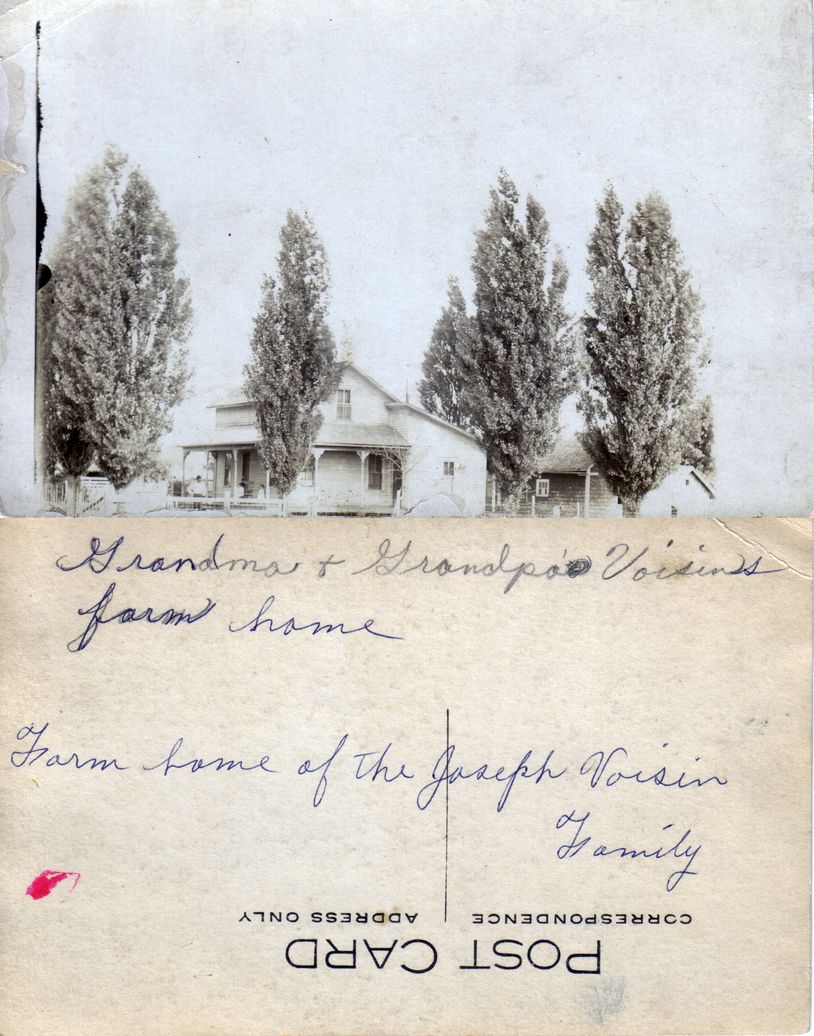 Grandma + Grandpa's Voisin's
farm home
Farm home of the Joseph Voisin
Family
CORRESPONDENCE
ADDRESS ONLY
POST CARD